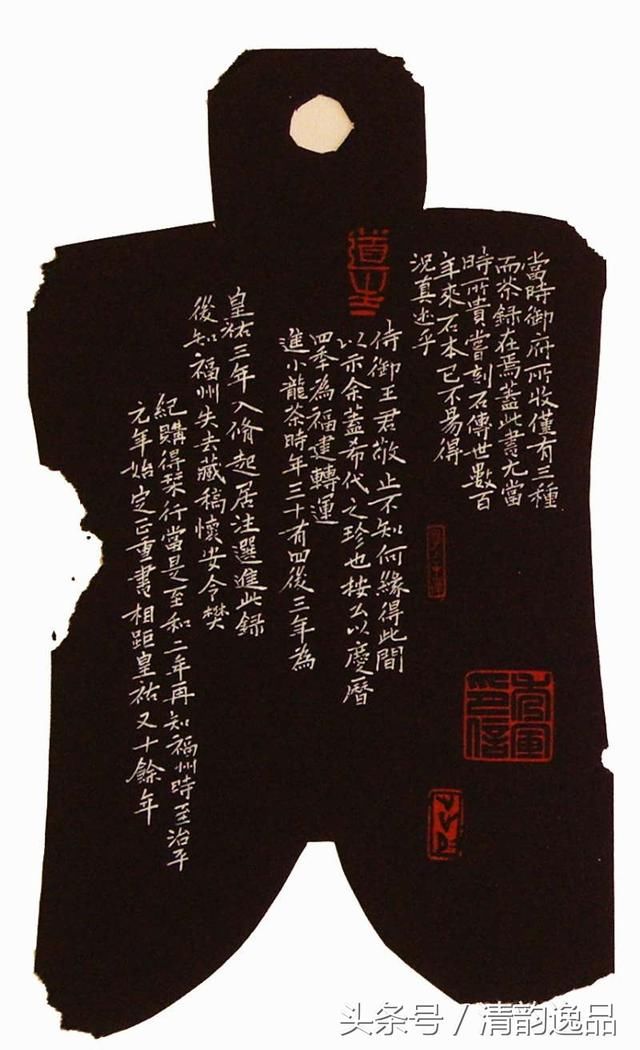 當時御府所收僅有三種
而茶録在焉蓋此書尤當
時所貴嘗刻石傳世數百
年來石本已不易得
況真迹乎
侍御王君敬止不知何緣得此間
以示余蓋希代之珍也按公以慶曆
四季為福建轉運
進小龍茶時年三十有四後三年為
皇祐三年入脩起居注選進此録
後知福州失去藏稿懷安令樊
紀購得栞行當是至和二年再知福州時至治平
元年始定正重書相距皇祐又十餘年
头条号 / 清韵逸品